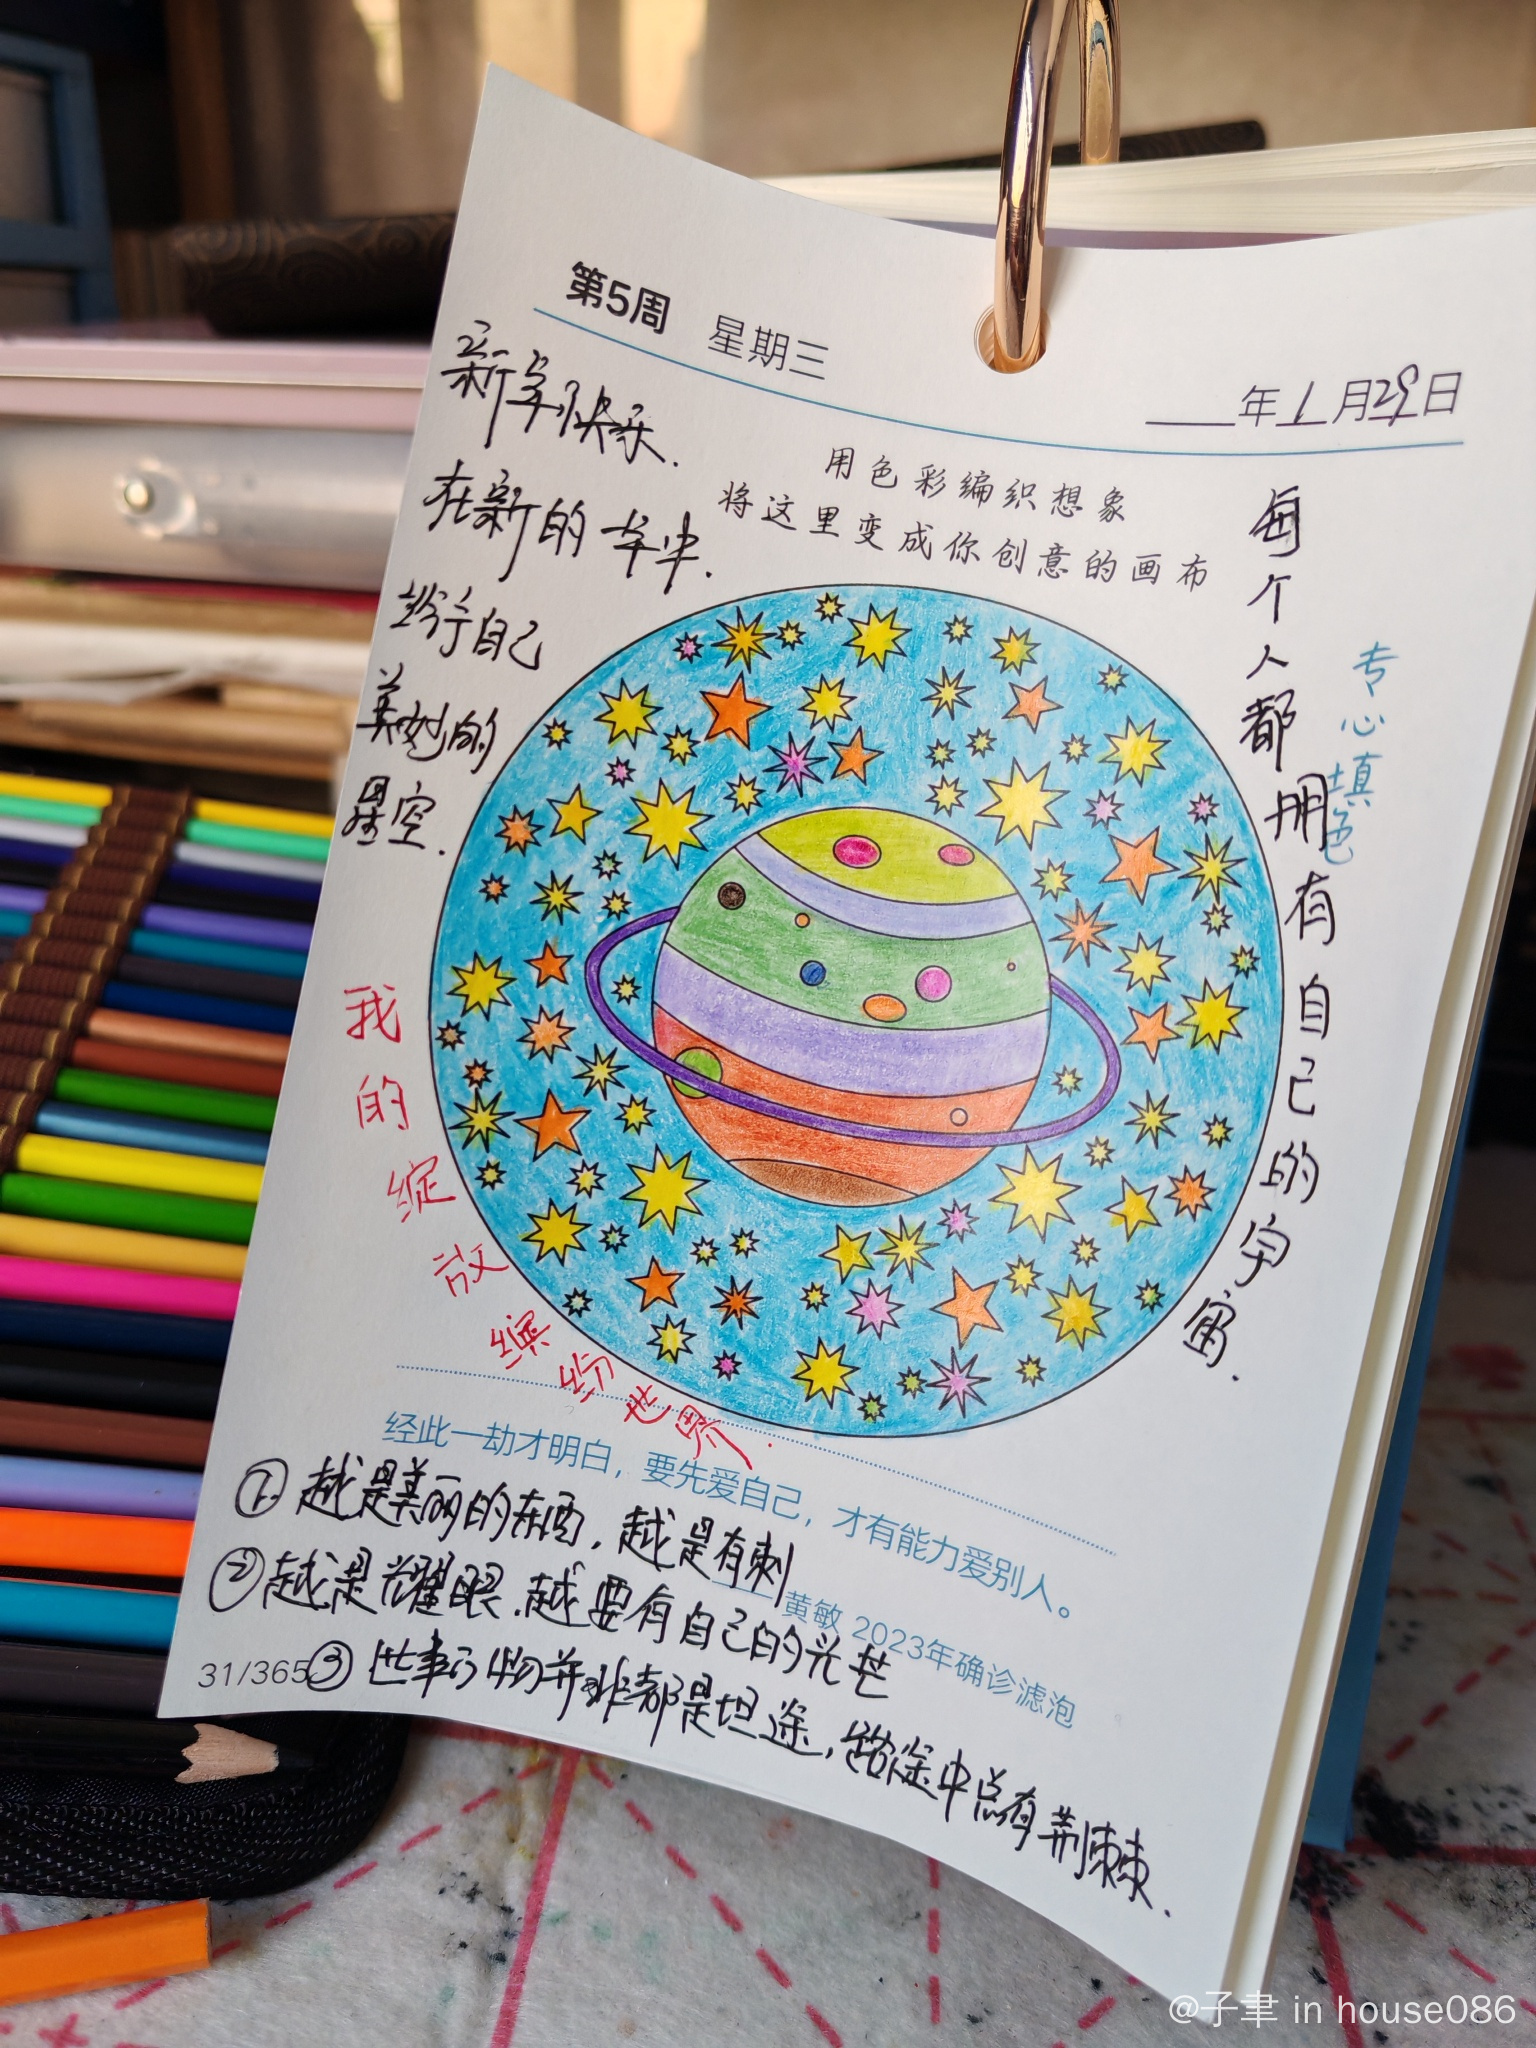 第5周 星期三
____年1月29日
新年快乐.
在新的一年中.
给予自己
美妙的
星空.
用色彩编织想象
将这里变成你创意的画布
每个人都拥有自己的宇宙.
专心填色
我的绽放缤纷世界.
经此一劫才明白，要先爱自己，才有能力爱别人。
黄敏 2023年确诊滤泡
① 越是美丽的东西，越是有刺
② 越是耀眼.越要有自己的光芒
③ 世事万物并非都是坦途，路途中总有荆棘.
31/365
@子聿 in house086